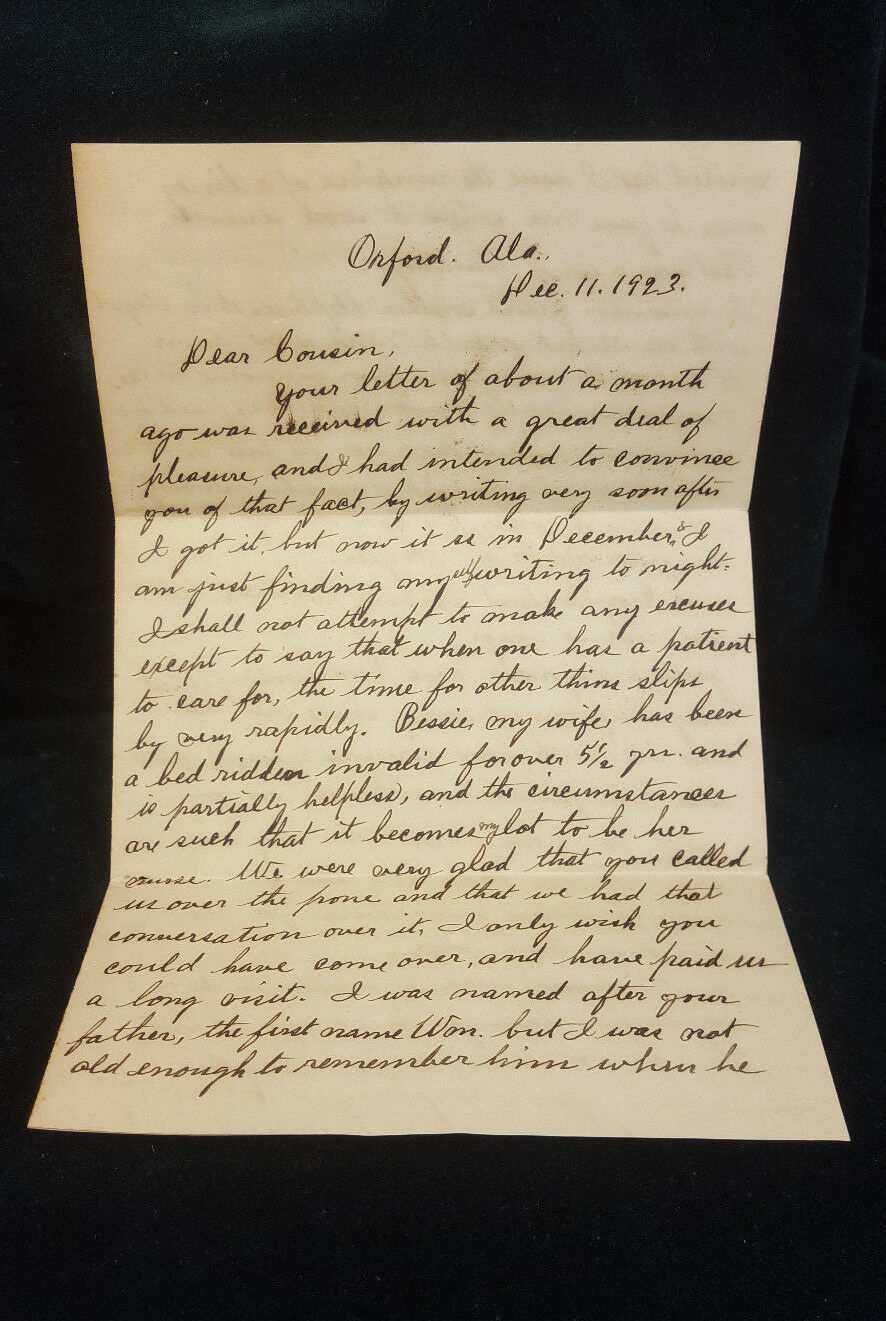 Oxford. Ala.,
Dec. 11. 1923.
Dear Cousin,
Your letter of about a month
ago was received with a great deal of
pleasure, and I had intended to convince
you of that fact, by writing very soon after
I got it, but now it is in December, & I
am just finding myself writing to night.
I shall not attempt to make any excuses
except to say that when one has a patient
to care for, the time for other thins slips
by very rapidly. Bessie, my wife, has been
a bed ridden invalid for over 5 1/2 yrs. and
is partially helpless, and the circumstances
are such that it becomes my lot to be her
nurse. We were very glad that you called
us over the pone and that we had that
conversation over it, I only wish you
could have come over, and have paid us
a long visit. I was named after your
father, the first name Wm. but I was not
old enough to remember him when he